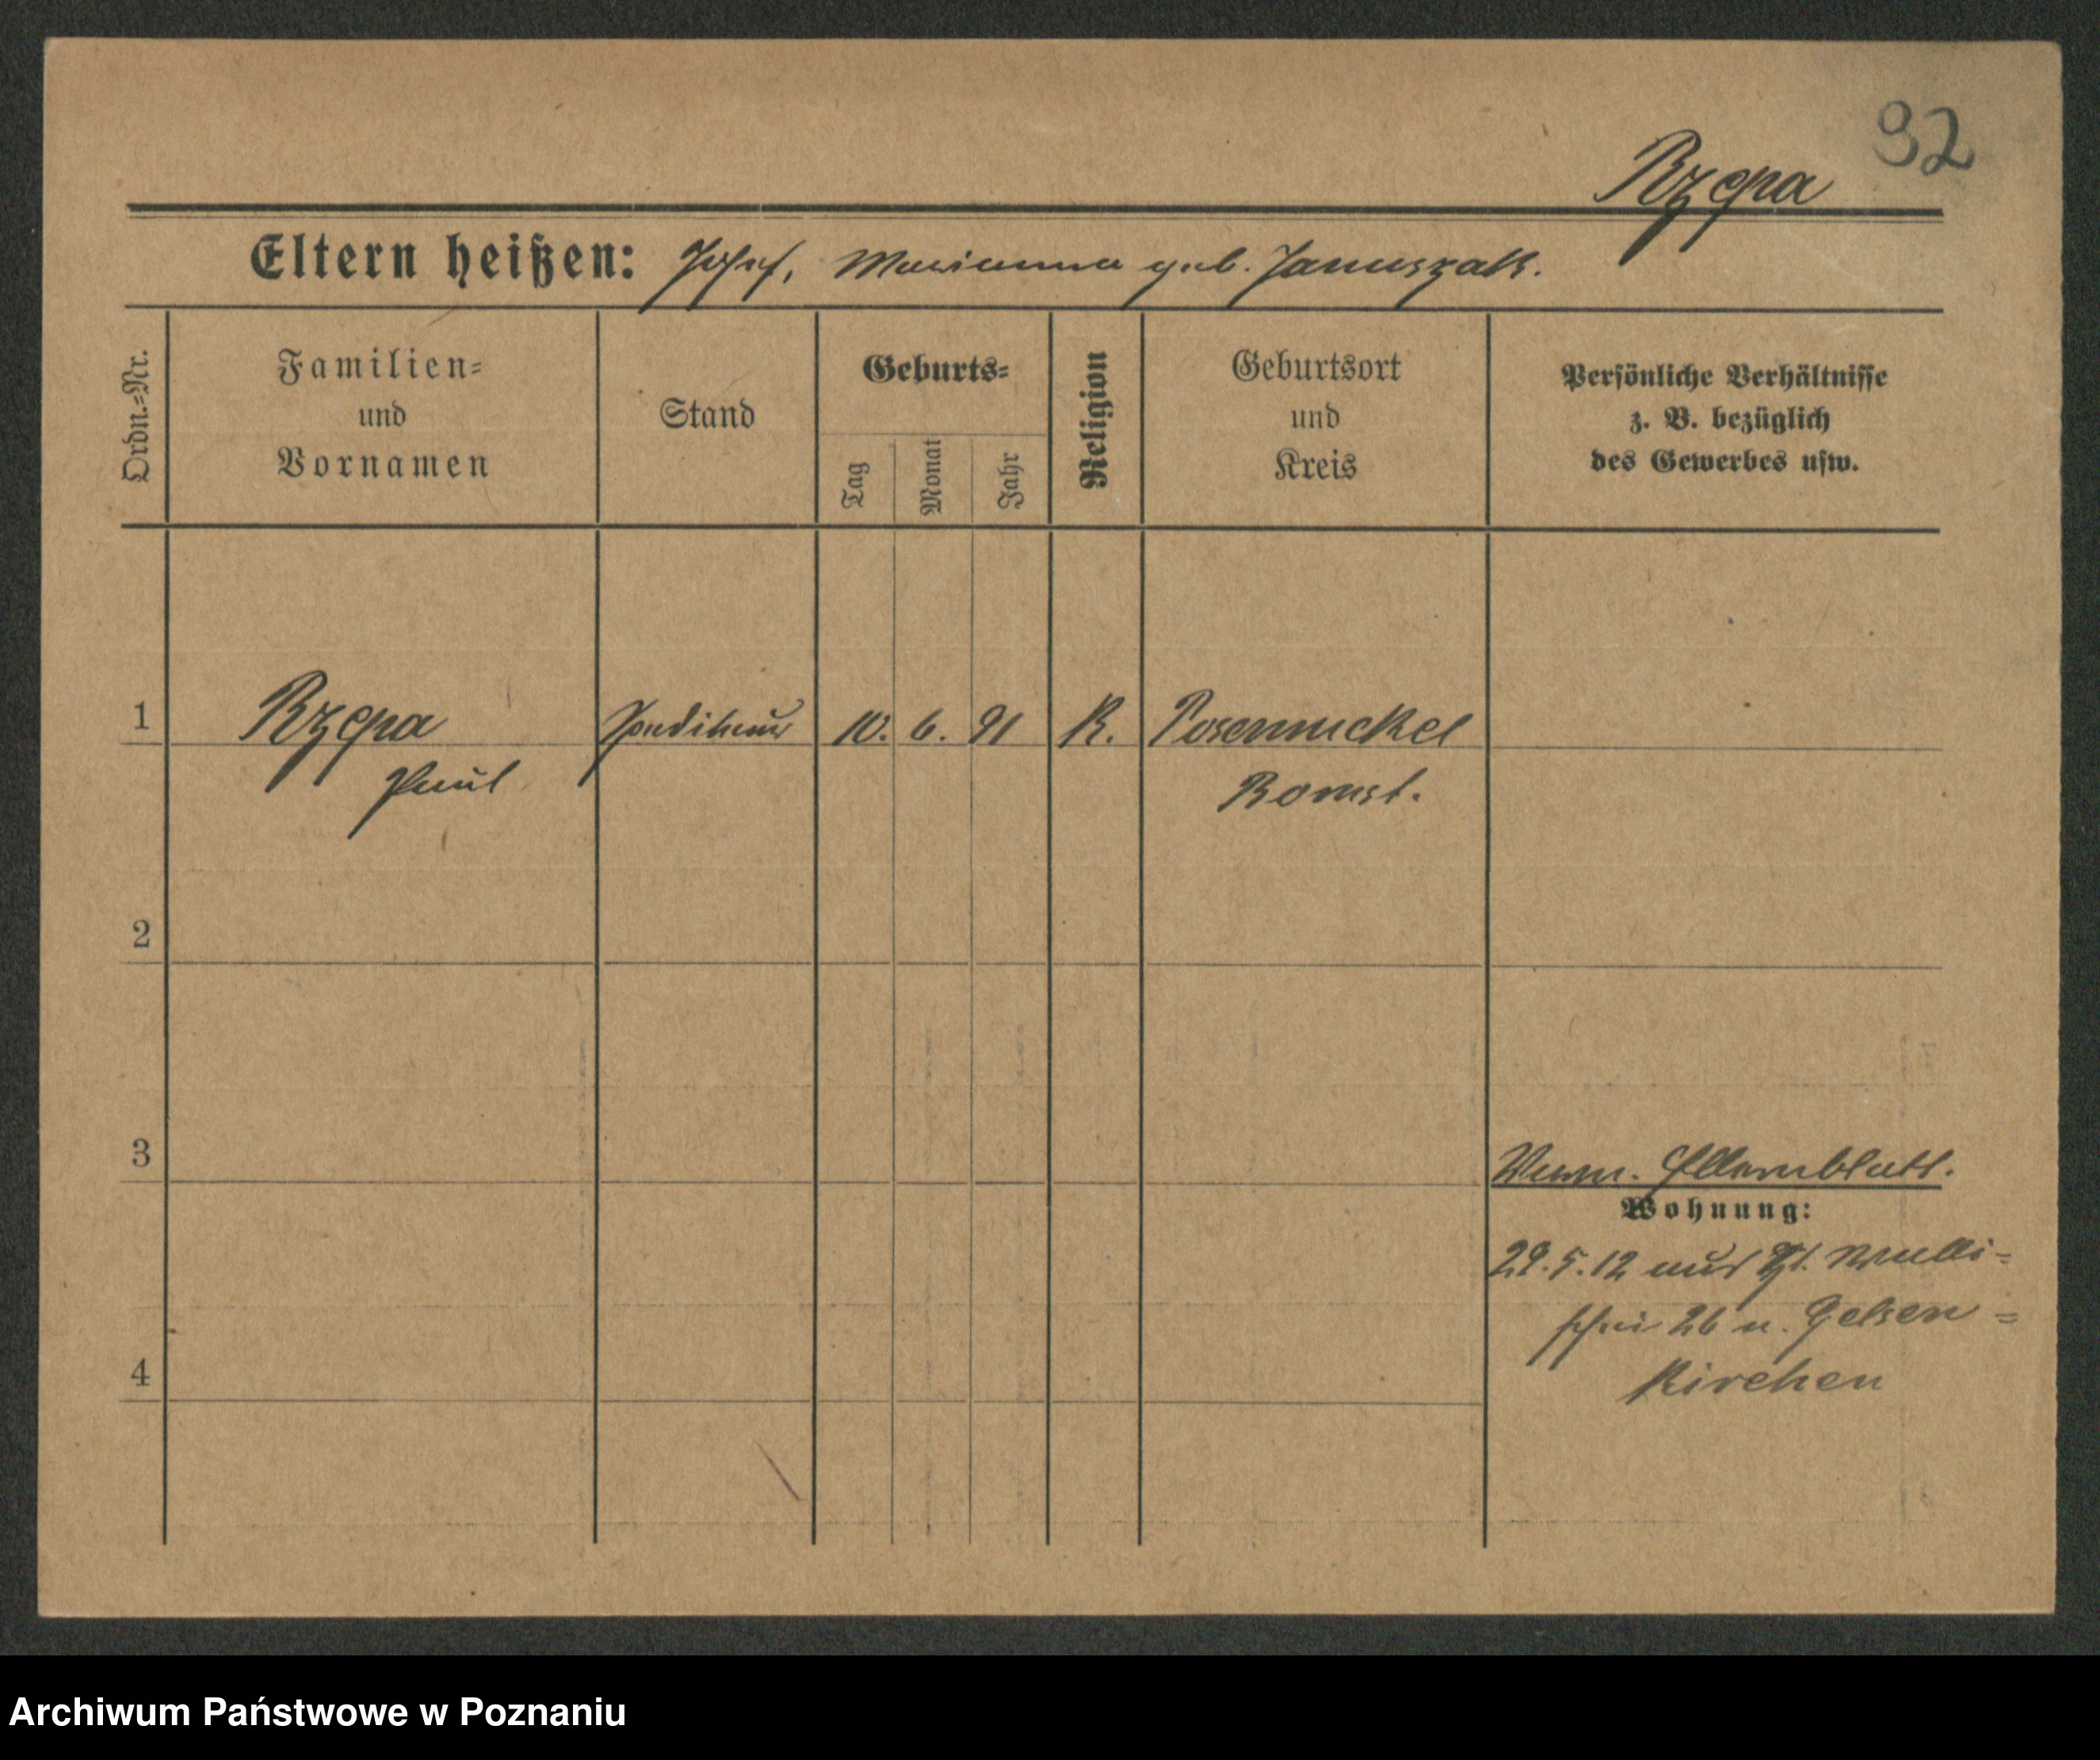 92
Rzepa
Eltern heißen: Josef, Marianna geb. Januszak.
Ordn.-Nr.
Familien-
und
Vornamen
Stand
Geburts-
Tag
Monat
Jahr
Religion
Geburtsort
und
Kreis
Persönliche Verhältnisse
z. B. bezüglich
des Gewerbes usw.
1 Rzepa 10. 6. 91 K. Posenmuckel
Paul Bomst.
2
3 Verm. Elternblatt.
Wohnung:
29. 5. 12 aus
26 n. Gelsen-
4 kirchen
Archiwum Państwowe w Poznaniu